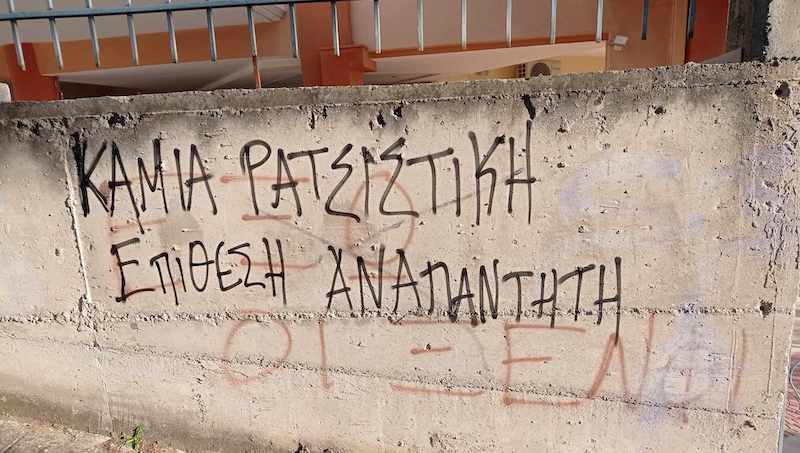 ΚΑΜΙΑ ΡΑΤΣΙΣΤΙΚΗ
ΕΠΙΘΕΣΗ ΑΝΑΠΑΝΤΗΤΗ
ΕΞΩ
ΟΙ ΞΕΝΟΙ